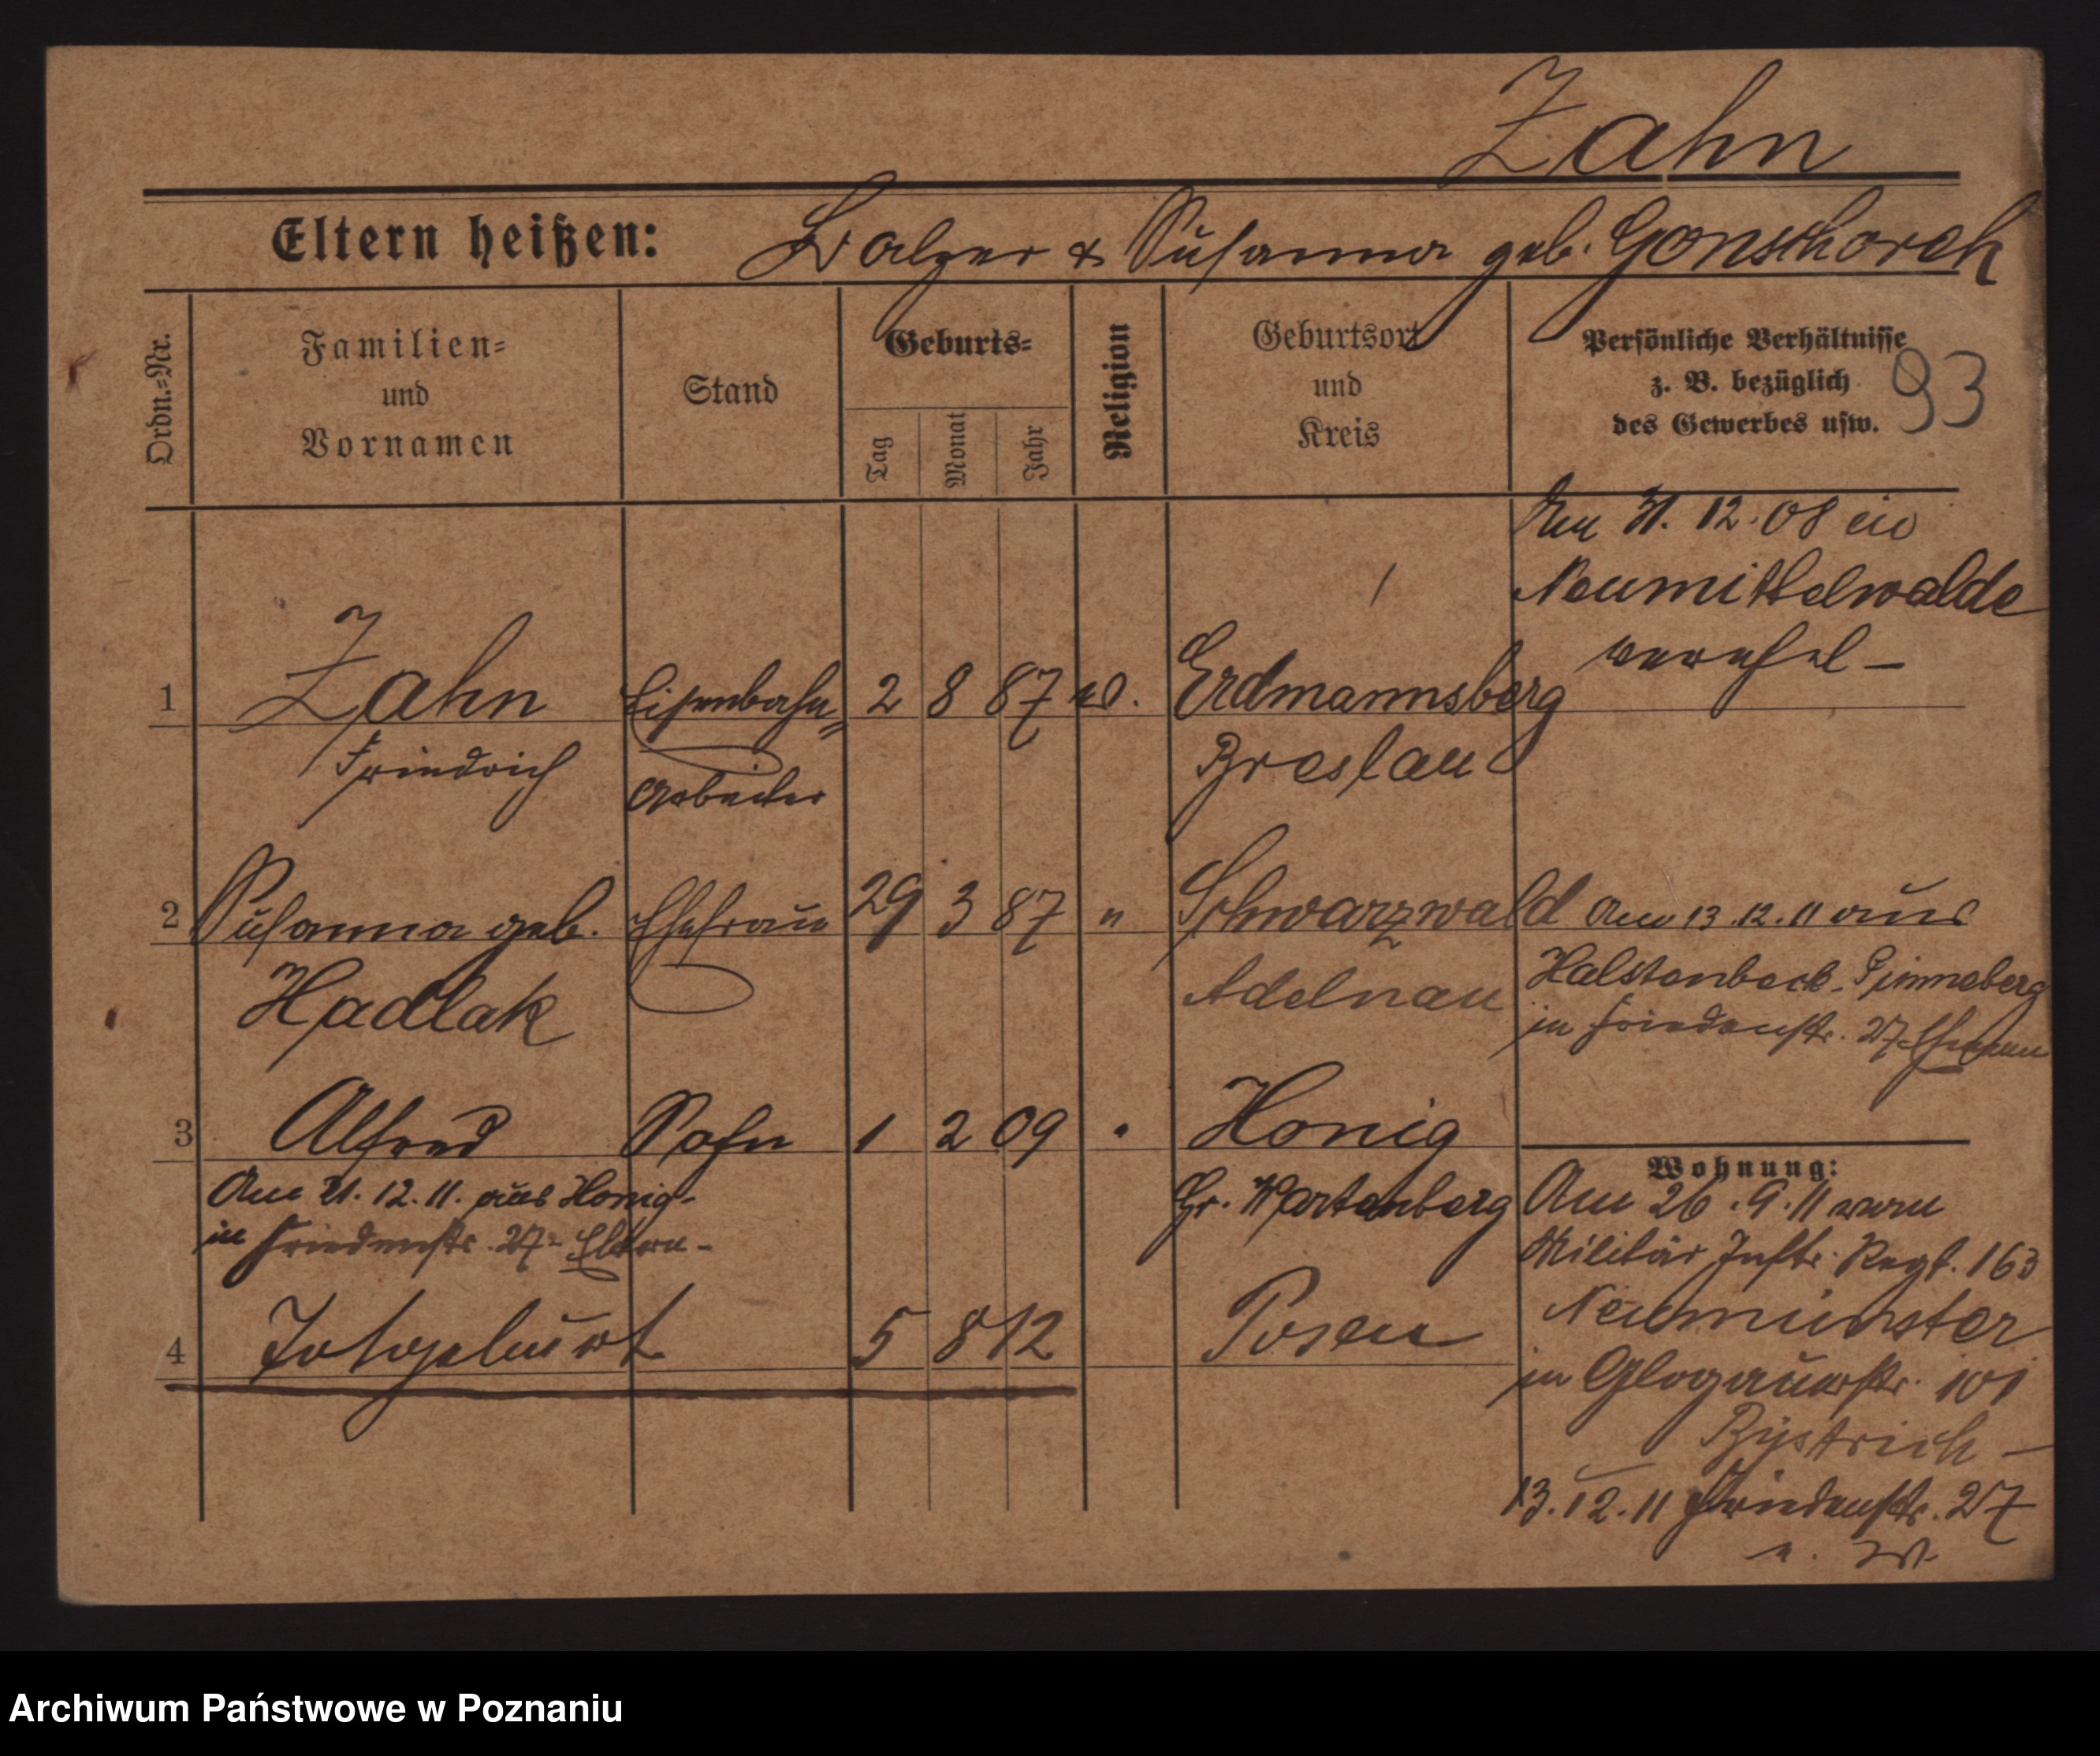 Zahn
Eltern heißen: Balzer & Susanna geb. Gonschorek
Ordn.=Nr.
Familien=
und
Vornamen
Stand
Geburts=
Tag
Monat
Jahr
Religion
Geburtsort
und
Kreis
Persönliche Verhältnisse
z. B. bezüglich
des Gewerbes usw.
93
31. 12. 08 in
Neumittelwalde
verehel-
1 Zahn Eisenbahn= 2 8 87 ev. Erdmannsberg
Friedrich Arbeiter Breslau
2 Susanna geb. Ehefrau 29 3 87 " Schwarzwald
Hadlak Adelnau
Am 13.12.11 aus
Halstenbeck-Pinneberg
in Friedenstr. 27 Ehemann
3 Alfred Sohn 1 2 09 " Honig
Gr. Wartenberg
Am 21.12.11. aus Honig-
in Friedenstr. 27= Eltern-
4 Totgeburt 5 8 12 Posen
Wohnung:
Am 26.9.11 vom
Militär Inftr. Regt. 163
Neumünster
in Glogauerstr. 101
Bystrich-
13.12.11 Friedenstr. 27
Archiwum Państwowe w Poznaniu